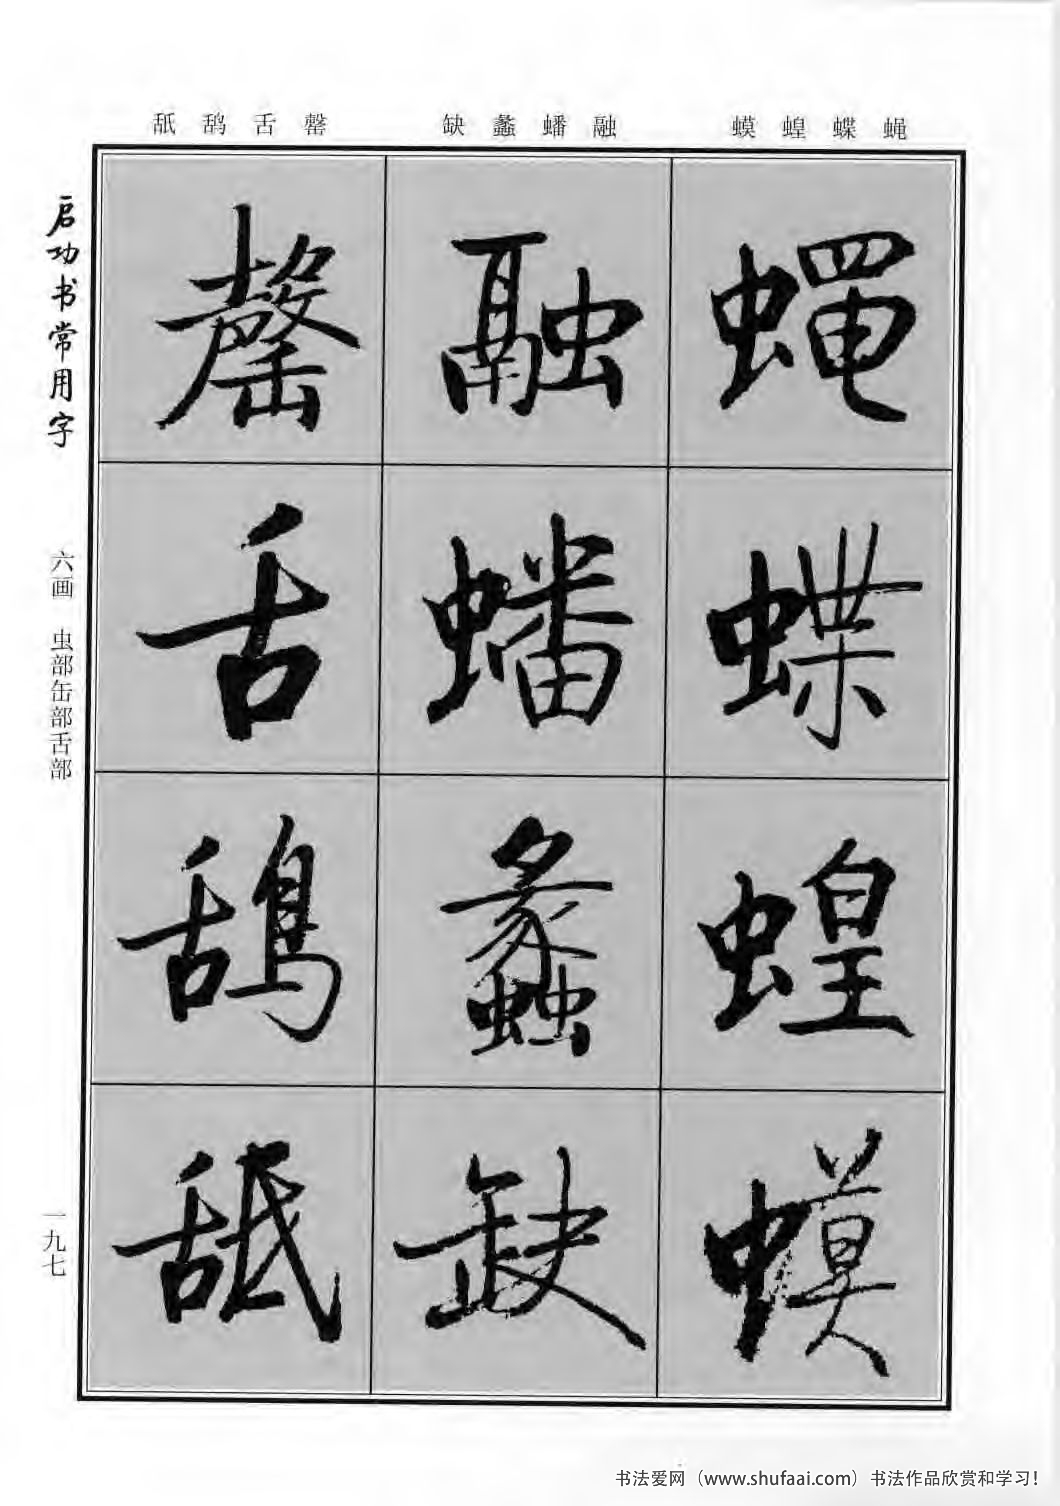 舐 鸹 舌 罄
缺 蠡 蟠 融
蟆 蝗 蝶 蝇
启功书常用字
六画 虫部缶部舌部
一九七
蝇
蝶
蝗
蟆
融
蟠
蠡
缺
罄
舌
鸹
舐
书法爱网（www.shufaai.com）书法作品欣赏和学习！